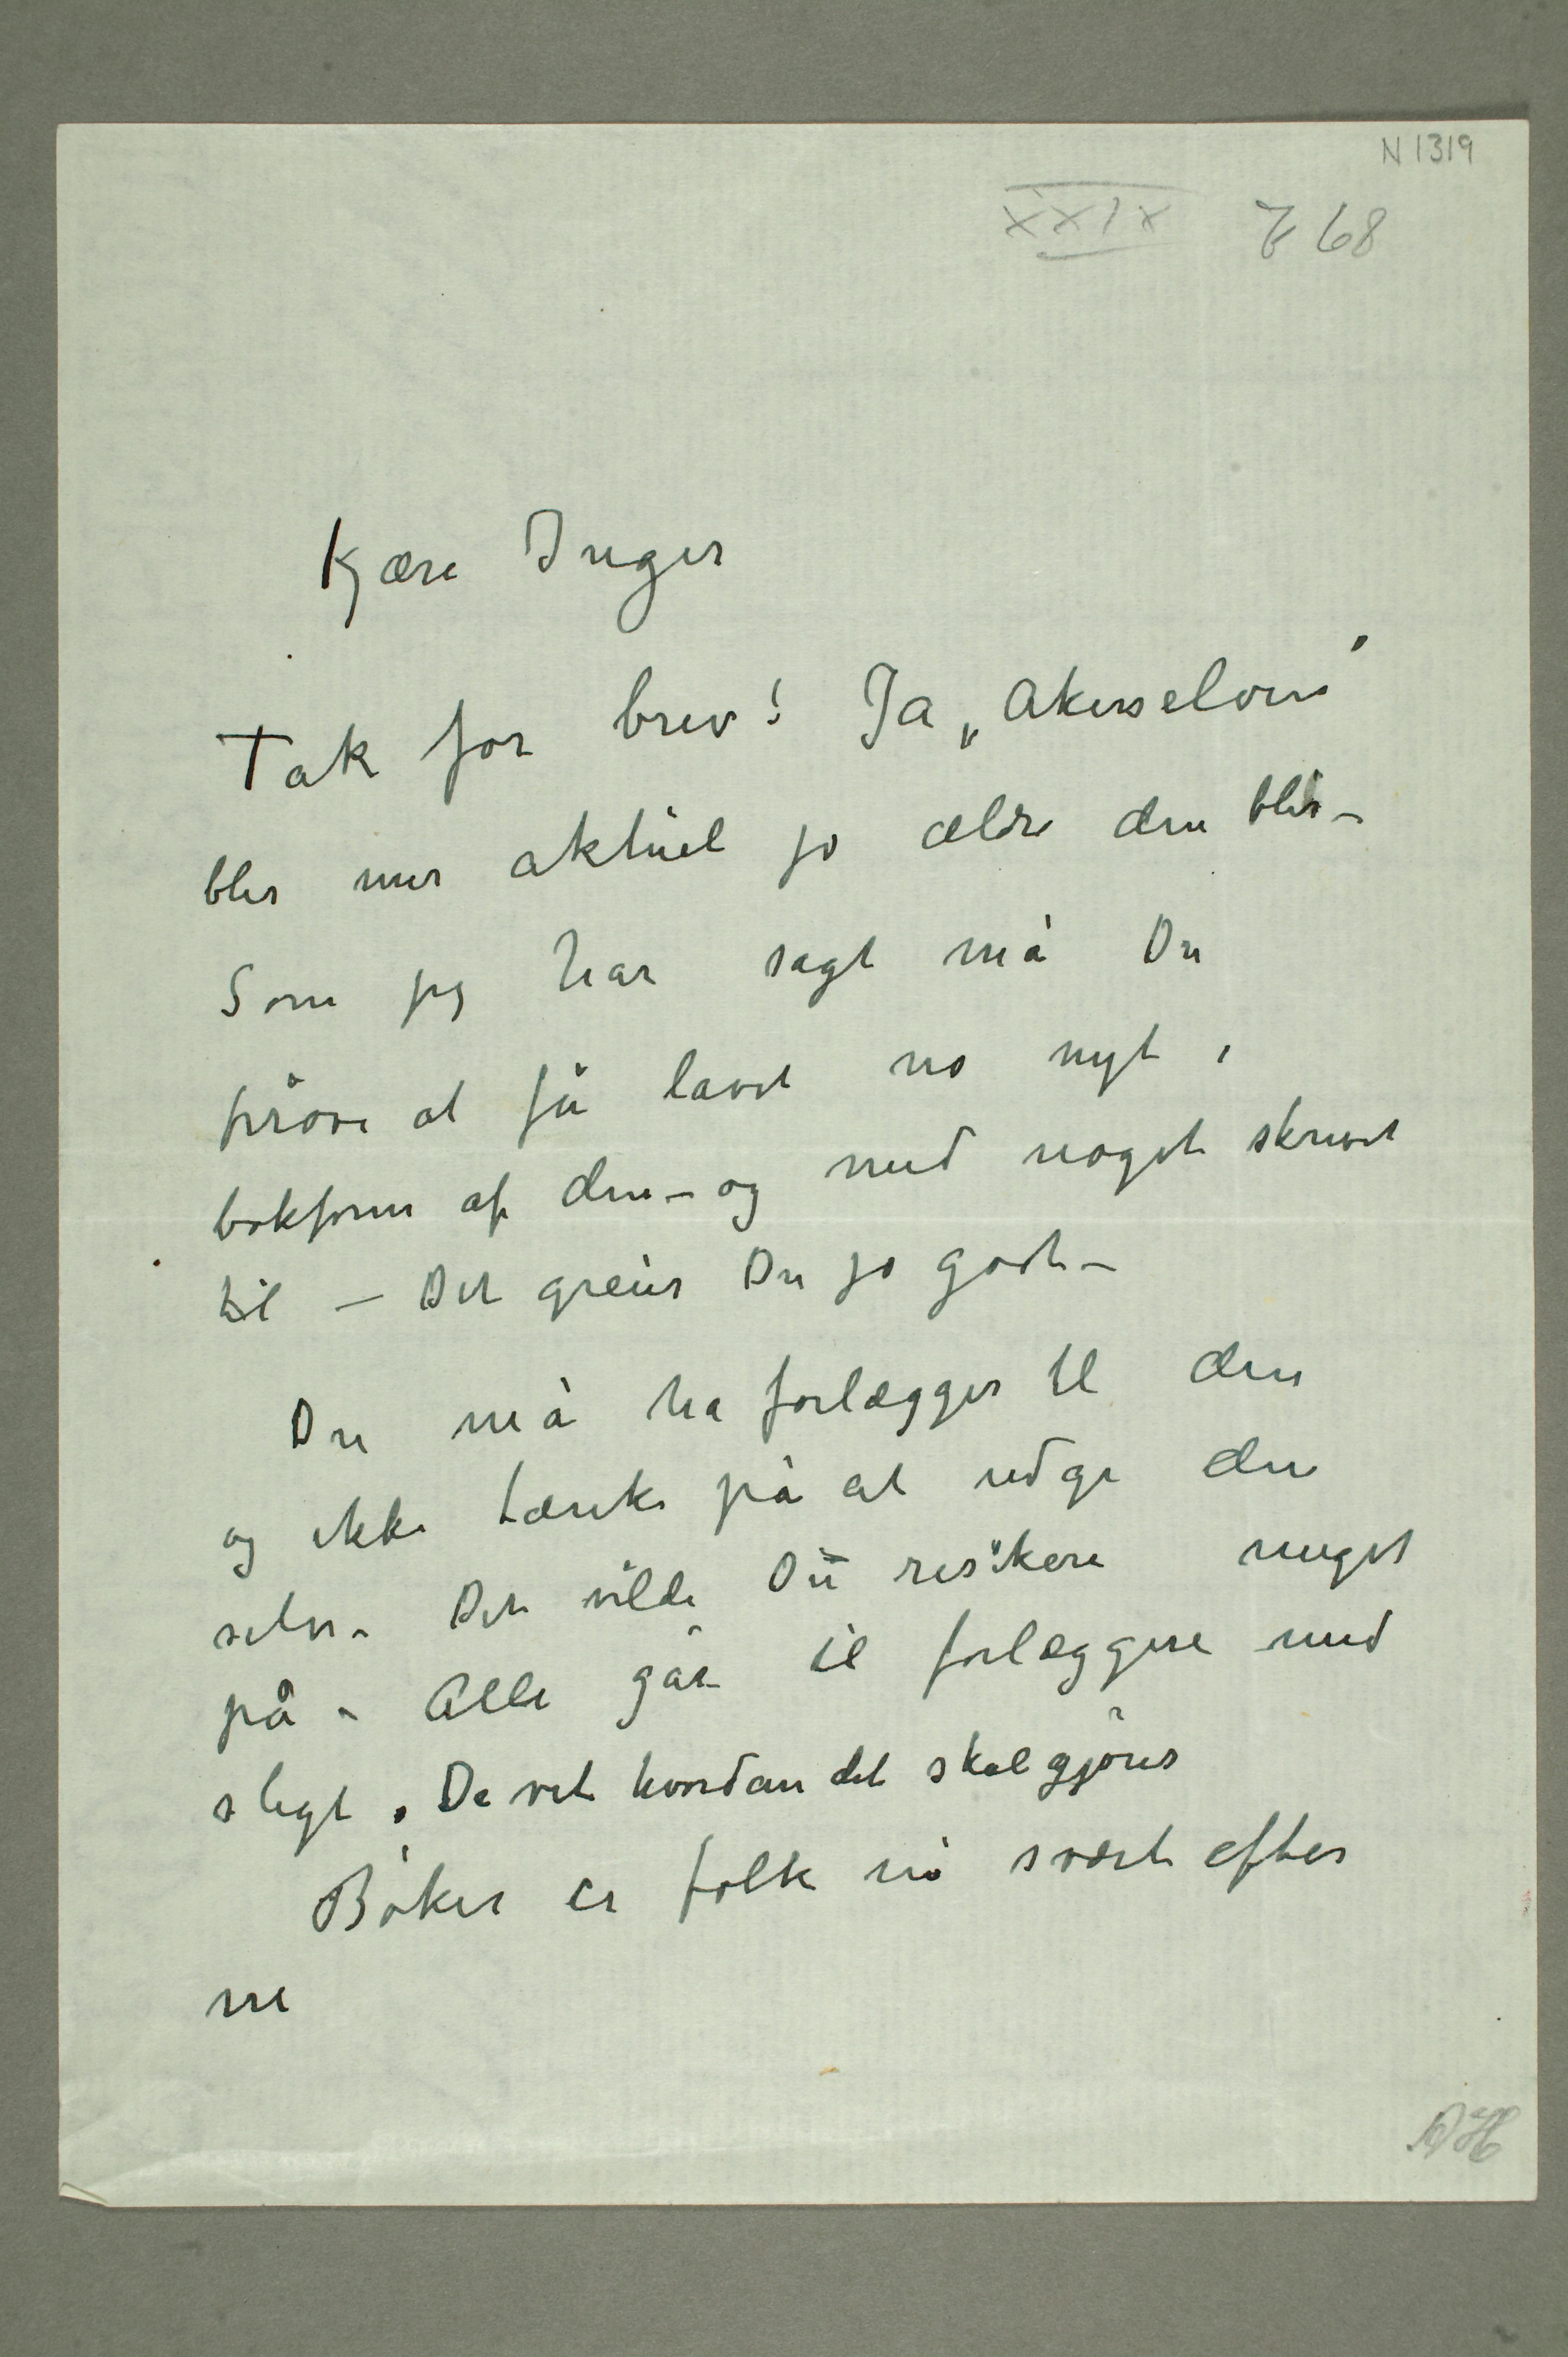 N 1319
XXIX
Kjære Inger
Tak for brev! Ja „Akerselven”
blir mer aktuel jo ældre den blir –
Som jeg har sagt må Du
prøve at få lavet no nyt i
bokform af den – og med noget skrevet
til – Det greier Du jo godt –
Du må ha forlægger til den
og ikke tænke på at udgi den
selv – Det vilde Du resikere meget
på – Alle går til forlæggere med
sligt. De vet hvordan det skal gjøres
Bøker er folk nå svært efter